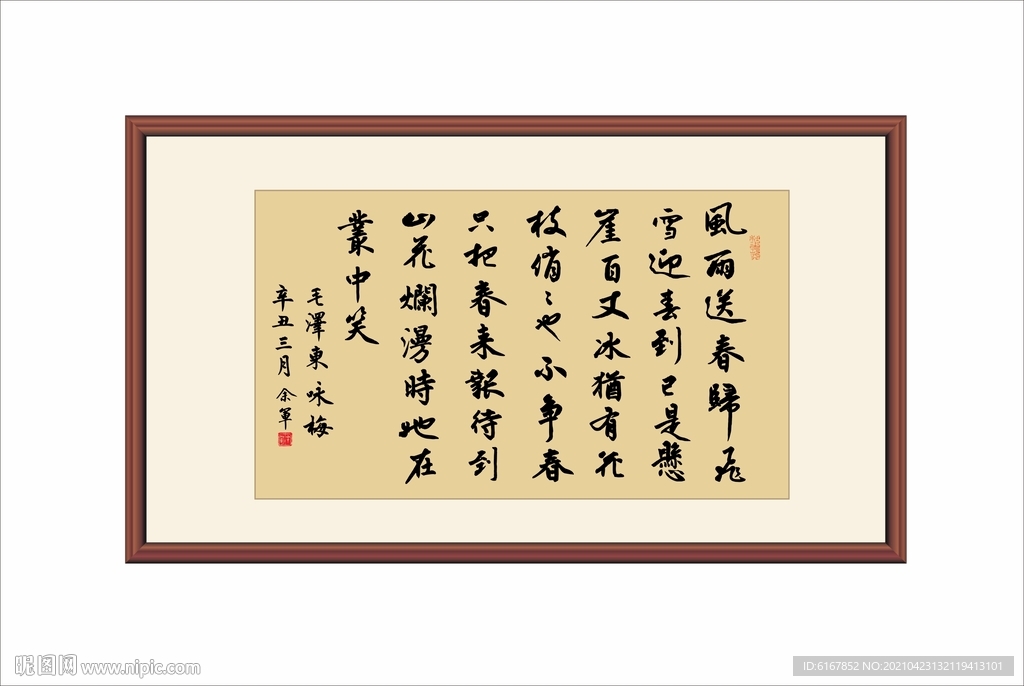 風雨送春歸飛
雪迎春到已是懸
崖百丈冰猶有花
枝俏俏也不爭春
只把春来報待到
山花爛漫時她在
叢中笑
毛澤東咏梅
辛丑三月余軍
昵图网 www.nipic.com
ID:6167852 NO:20210423132119413101